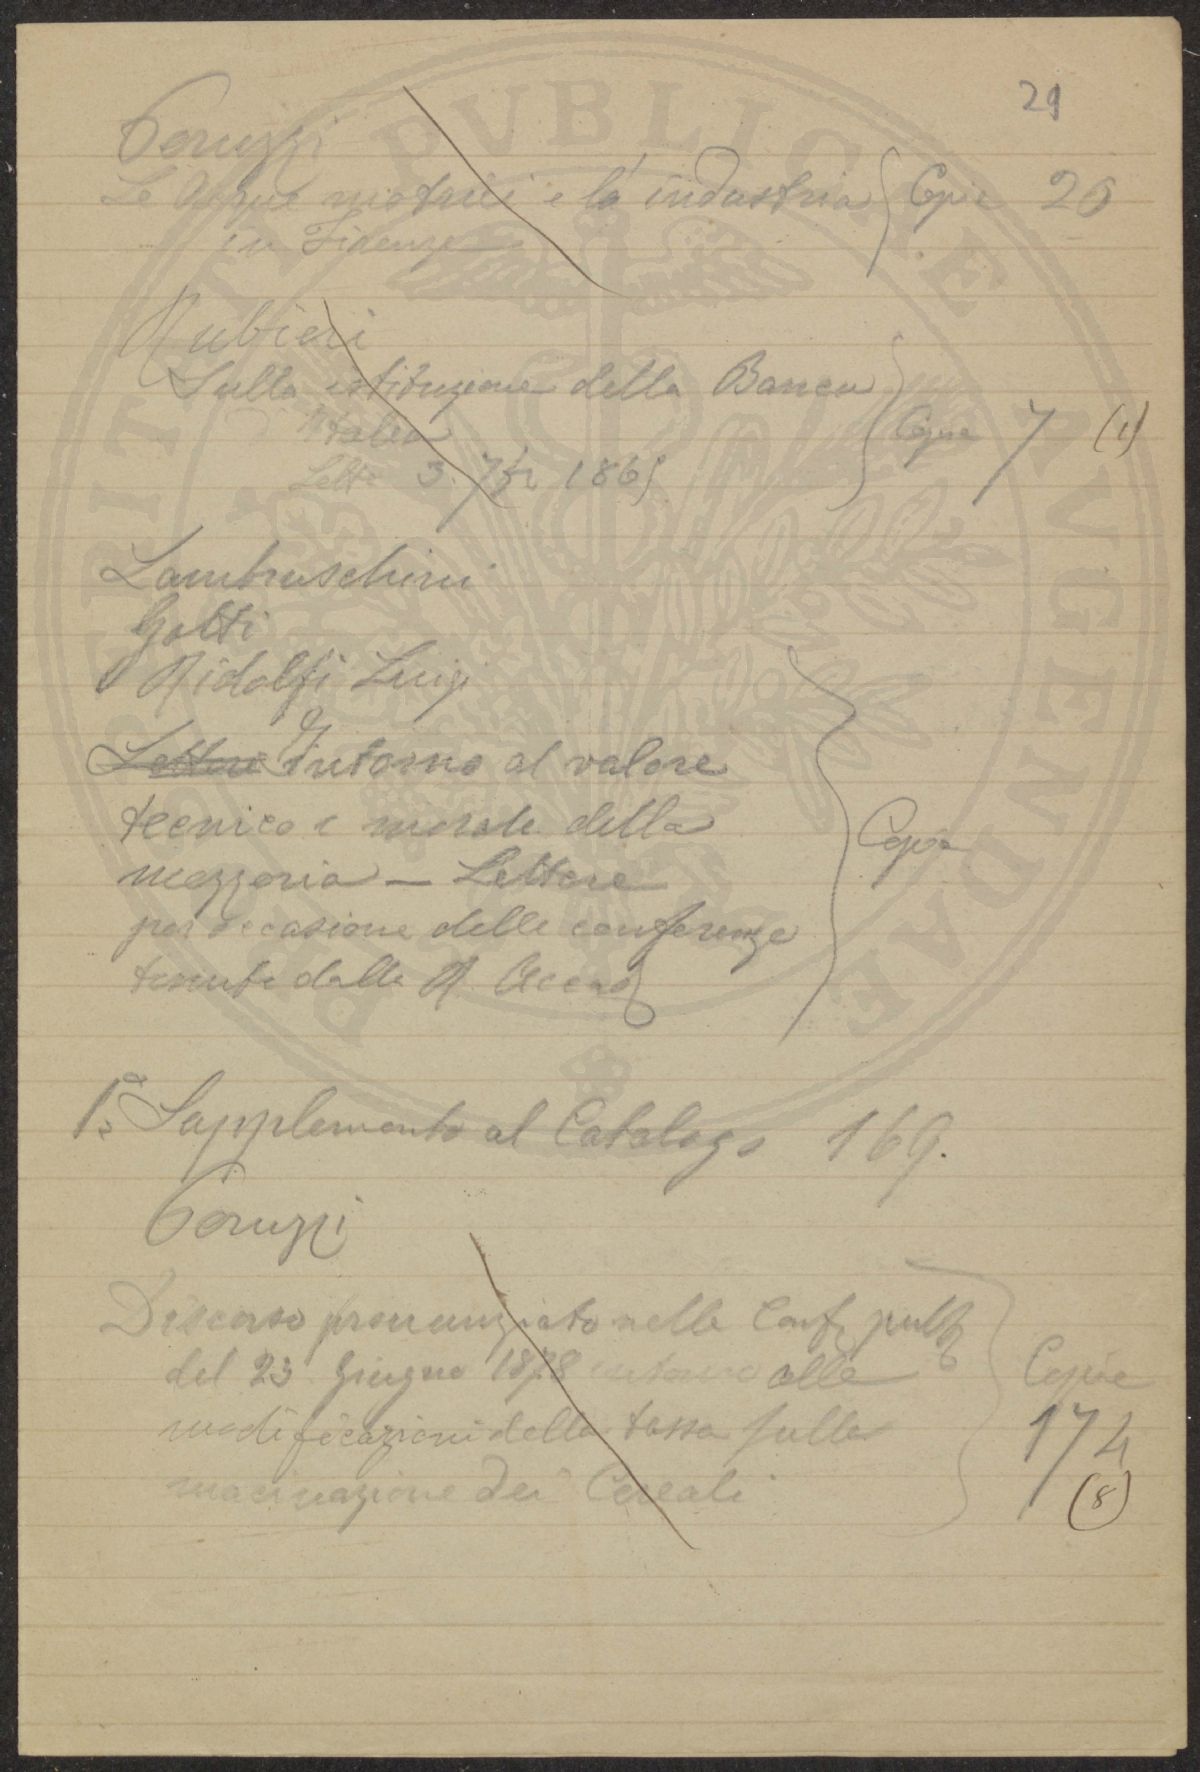 29
Peruzzi
Le Acque motrici e la industria } Copie 20
in Firenze
Rubieri
Sulla istituzione della Banca
Italia } Copie 7 (1)
Lett. 3. 7bre 1865
Lambruschini
Gotti
Ridolfi Luigi
Lettere Intorno al valore
tecnico e morale della
mezzeria — Lettere } Copie
per occasione delle conferenze
tenute dalla R. Accad
1° Supplemento al Catalogo 169.
Peruzzi
Discorso pronunziato nelle Conf. pubb
del 23 Giugno 1878 intorno alle } Copie
modificazioni della tassa sulla 174
macinazione dei Cereali (8)
PROSPERITATI PVBLICAE AVGENDAE